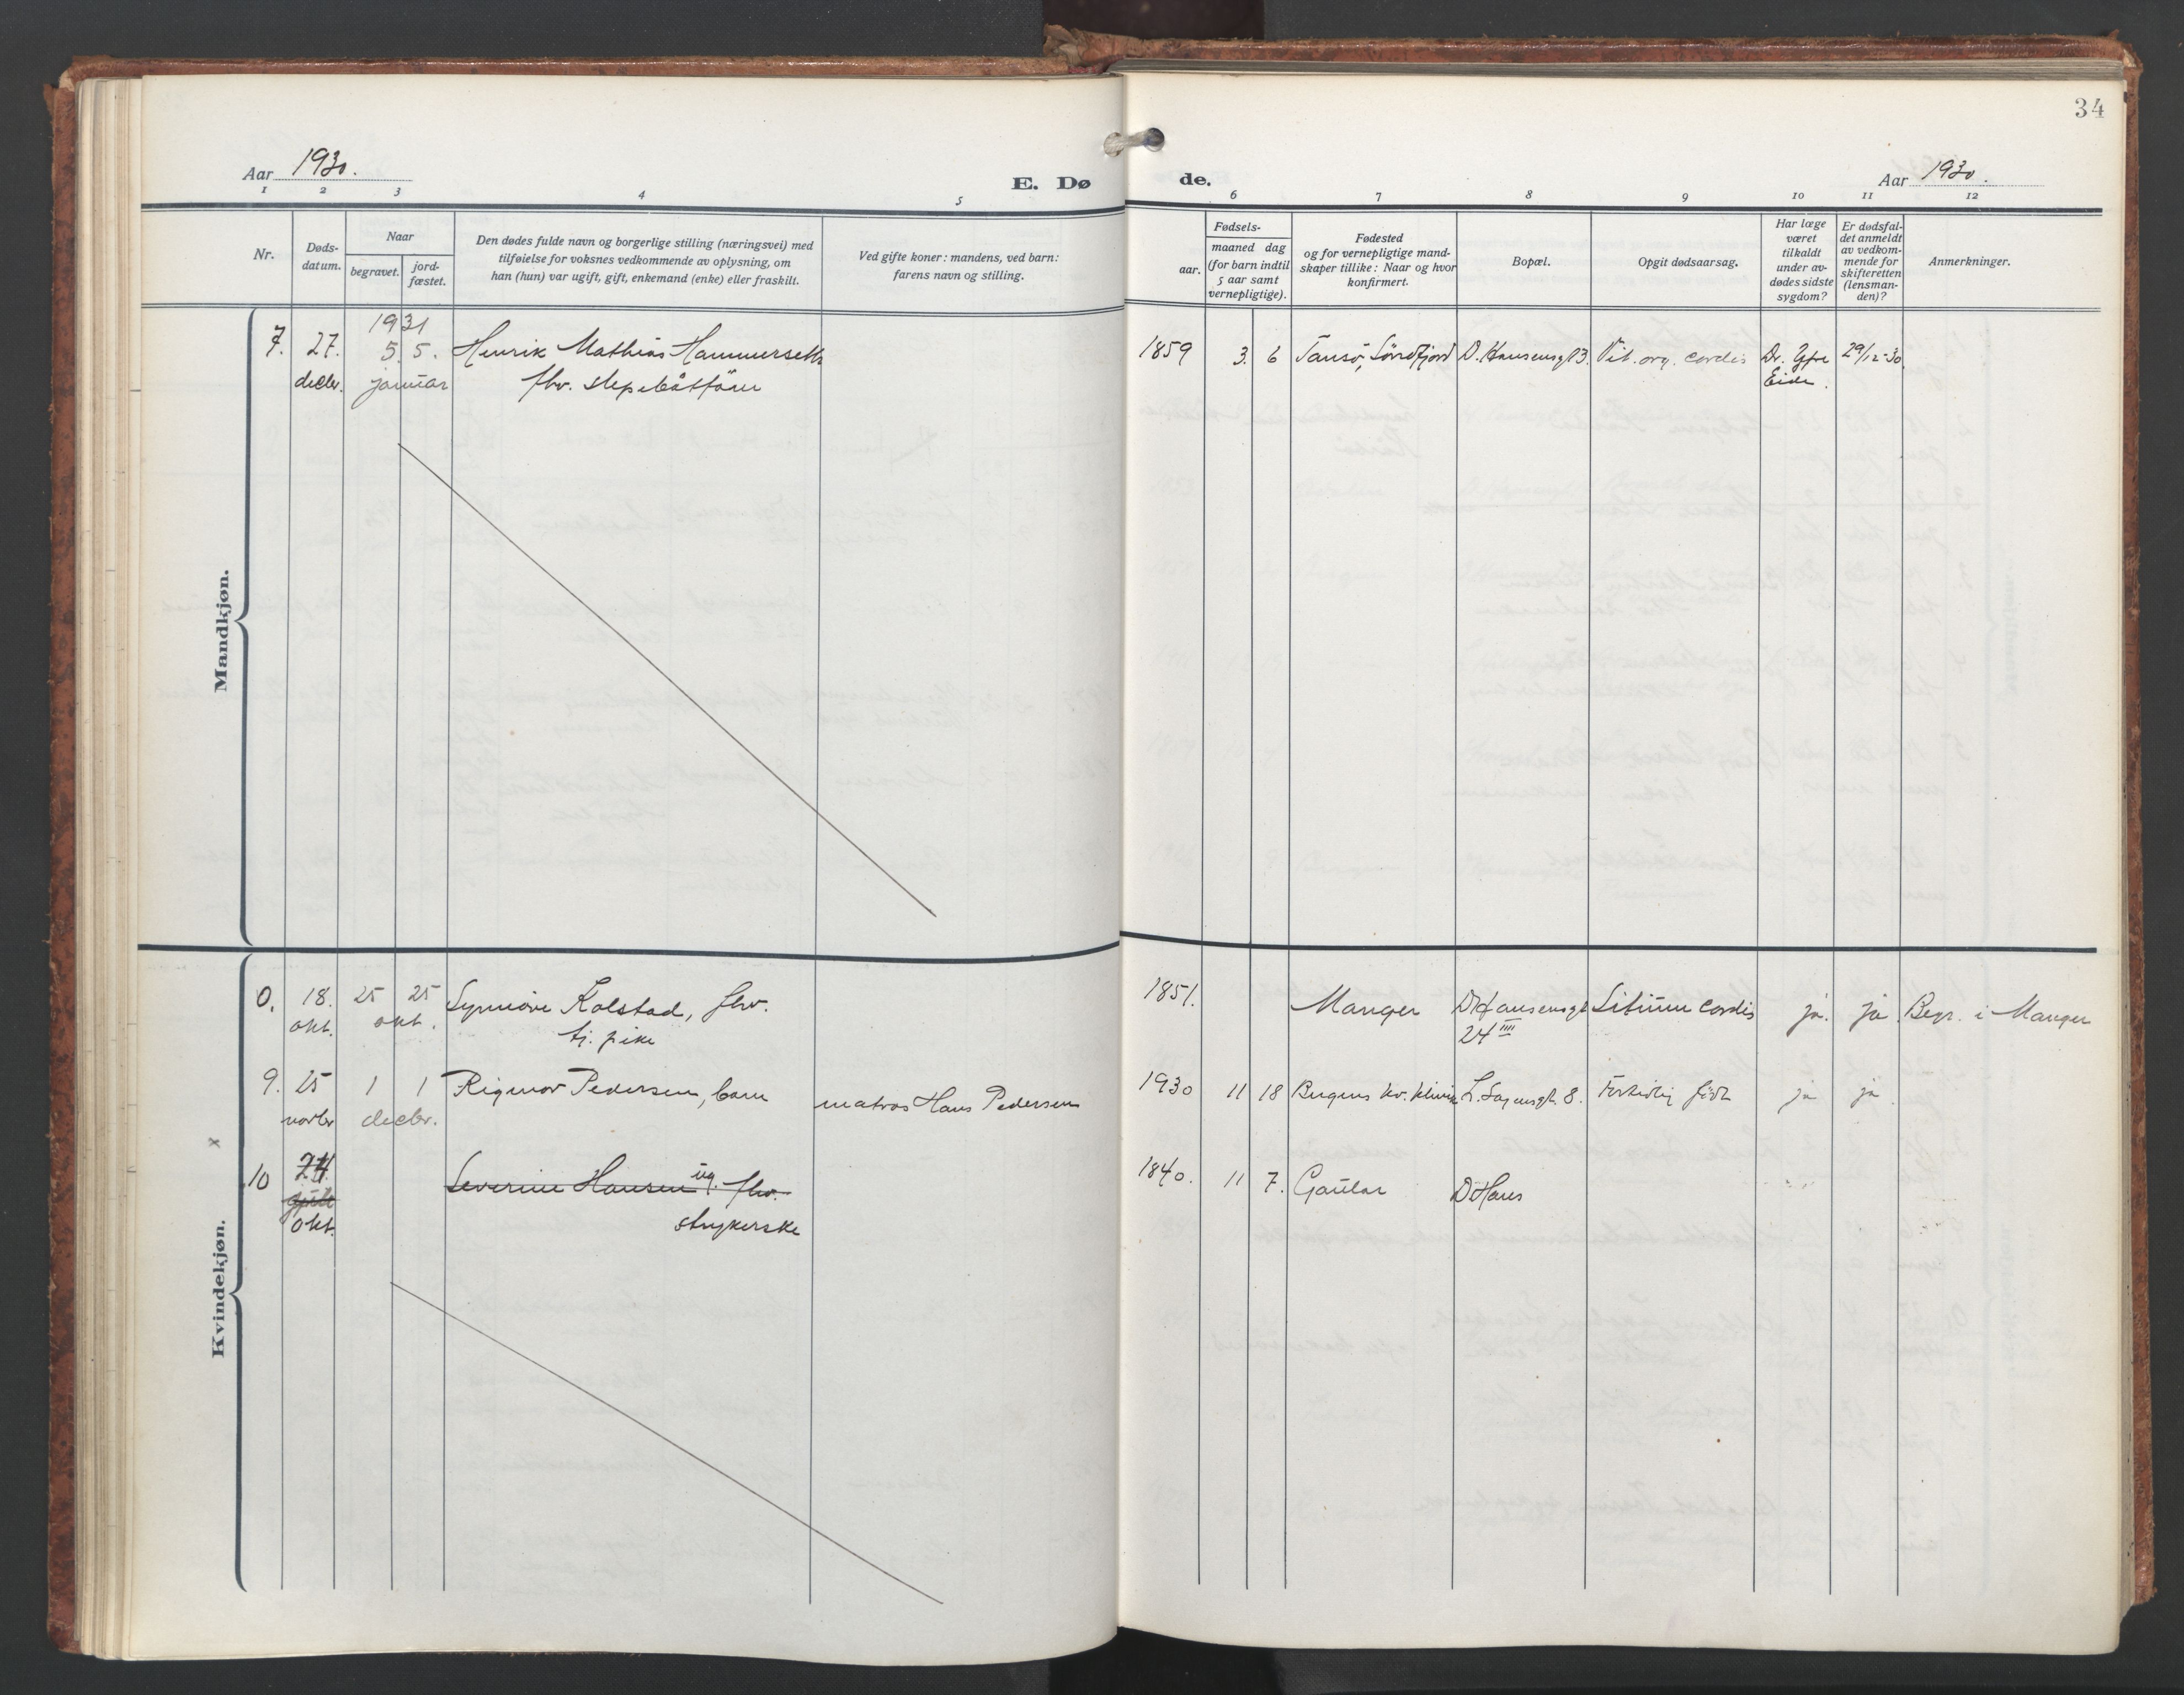 34
Aar 1930.
E. Dø
de.
Aar 1930.
1 2 3 4 5 6 7 8 9 10 11 12
Nr.
Døds-
datum.
Naar
begravet.
jord-
fæstet.
Den dødes fulde navn og borgerlige stilling (næringsvei) med
tilføielse for voksnes vedkommende av oplysning, om
han (hun) var ugift, gift, enkemand (enke) eller fraskilt.
Ved gifte koner: mandens, ved barn:
farens navn og stilling.
Fødsels-
aar.
maaned dag
(for barn indtil
5 aar samt
vernepligtige).
Fødested
og for vernepligtige mand-
skaper tillike: Naar og hvor
konfirmert.
Bopæl.
Opgit dødsaarsag.
Har læge
været
tilkaldt
under av-
dødes sidste
sygdom?
Er dødsfal-
det anmeldt
av vedkom-
mende for
skifteretten
(lensman-
den)?
Anmerkninger.
Mandkjøn.
1931
7. 27. 5. 5. Henrik Mathias Hammerseth 1859 3. 6 Sørefjord D. Hansensgt 3. Vit. org. cordis Dr. 29/12-30.
decbr. januar fhv. slepebåtfører Eide.
Kvindekjøn.
0. 18. 25 25 Synnøve Kolstad, fhv. 1851. Manger D Hansensgt Litium cordis ja. ja. Begr. i Manger
okt. okt. tj. pike 24 IIII
9. 25 1 1 Rigmor Pedersen, barn matros Hans Pedersen 1930 11 18 Bergens kv. klinik L. Sagensgt. 8. Fortidlig født ja ja.
novbr decbr.
10 24 Severine Hansen ug. fhv. 1840. 11 7. Gaular D Hans
okt. strykerske